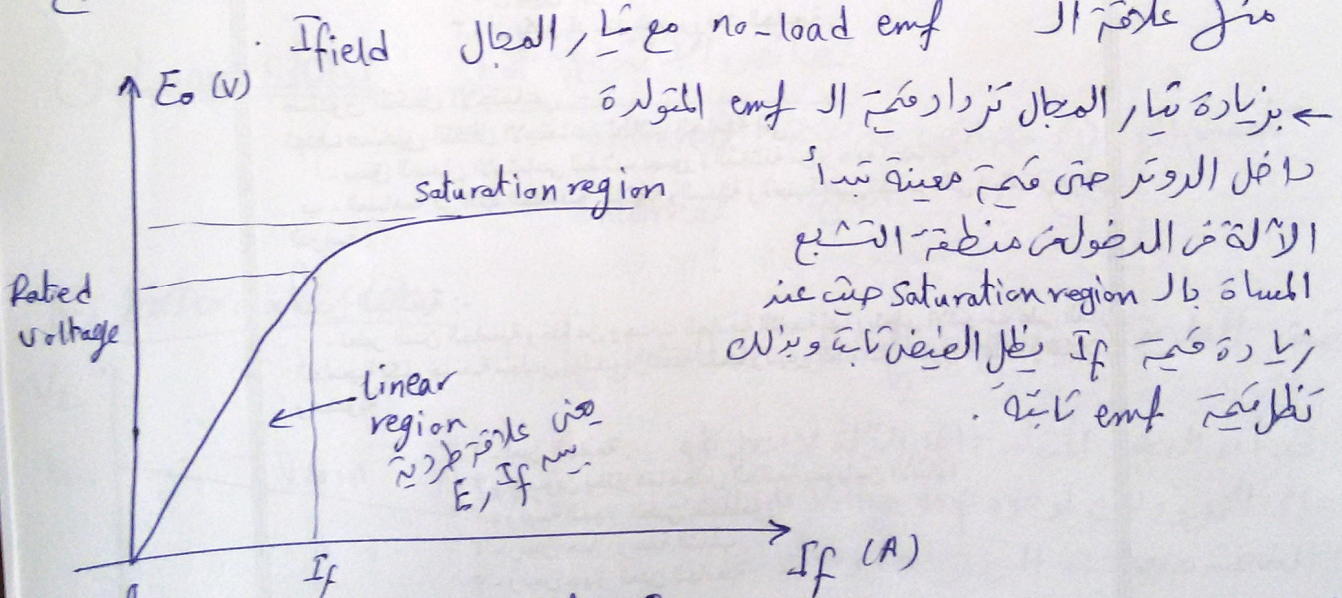 علاقة الـ no-load emf مع تيار المجال Ifield .
← بزيادة تيار المجال تزداد قيمة الـ emf المتولدة
داخل الروتر حتى قيمة معينة تبدأ
الآلة في الدخول في منطقة التشبع
المسماة بالـ Saturation region حيث عند
زيادة قيمة If يظل الفيض ثابت وبذلك
تظل قيمة emf ثابتة .
E₀ (V)
Saturation region
Rated
voltage
Linear
region
يعنى علاقة طردية
بين E, If
If
If (A)